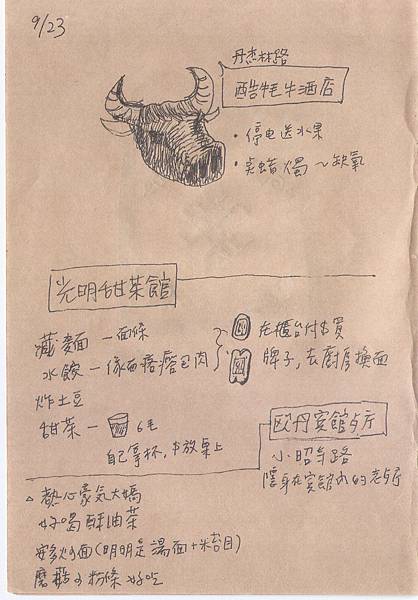 9/23
丹杰林路
酷牦牛酒店
・停电送水果
・点蜡燭～缺氧
光明甜茶館
藏麵 — 面條
水餃 —
炸土豆
甜茶 — 6毛
自己拿杯,放桌上
在櫃台付錢買
牌子,去廚房換面
欧丹宾館
小昭寺路
隱身在宾館內的老
△ 熱心豪氣大媽
好喝酥油茶
炒面(明明是湯面+米苔目)
粉條好吃